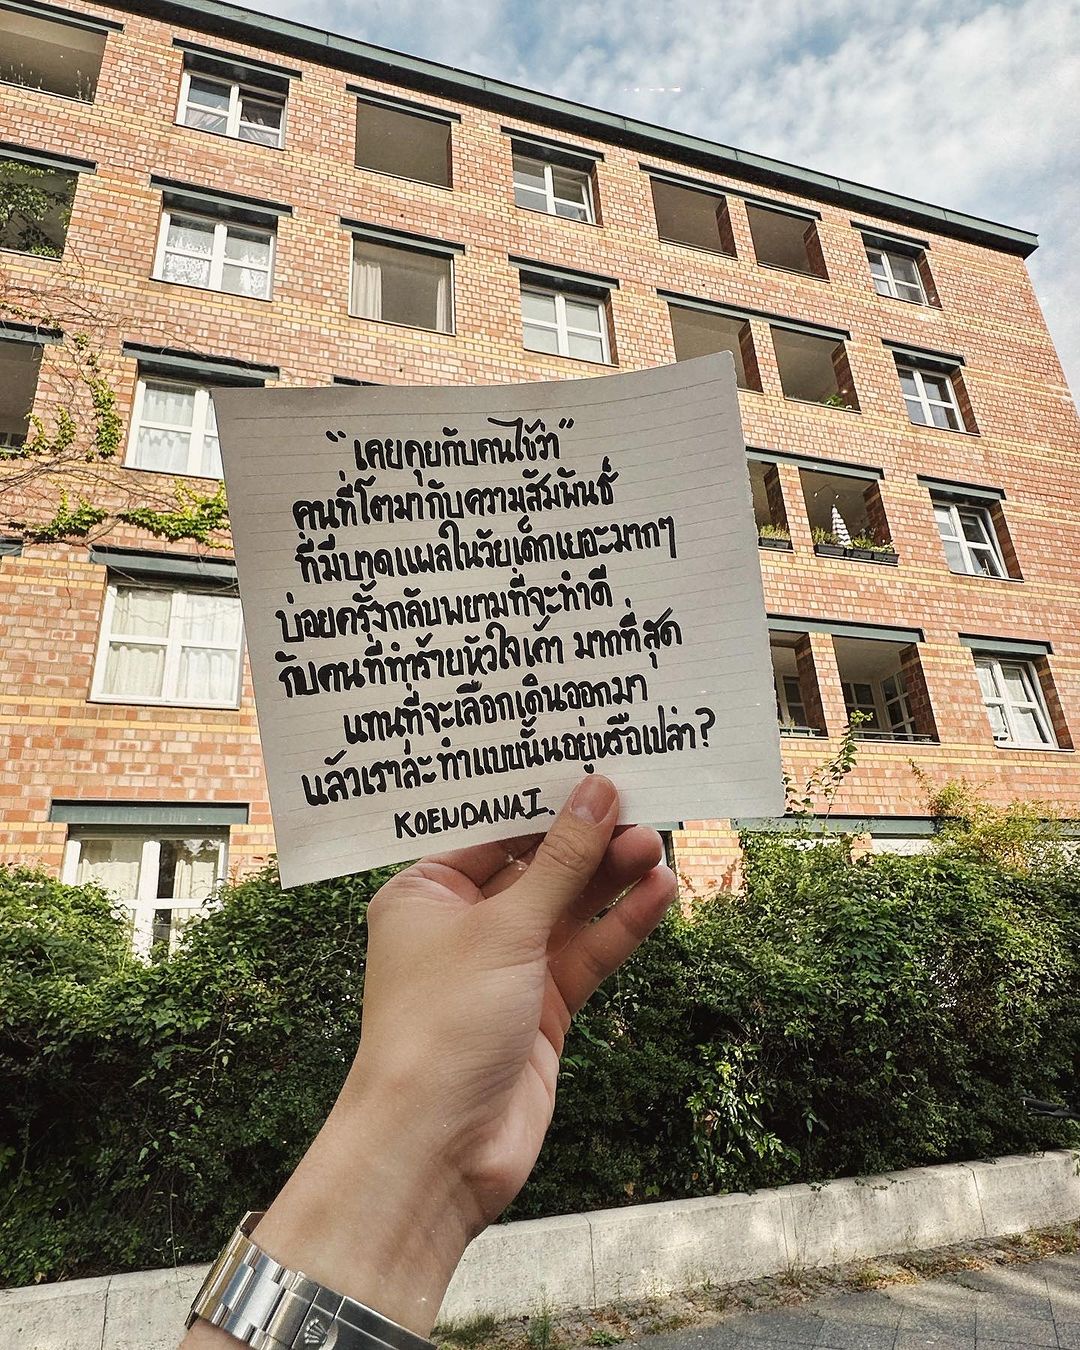 “เคยคุยกับคนไข้ว่า”
คนที่โตมากับความสัมพันธ์
ที่มีบาดแผลในวัยเด็กเยอะมากๆ
บ่อยครั้งกลับพยามที่จะทำดี
กับคนที่ทำร้ายหัวใจเค้า มากที่สุด
แทนที่จะเลือกเดินออกมา
แล้วเราล่ะทำแบบนั้นอยู่หรือเปล่า?
KOENDANAI.